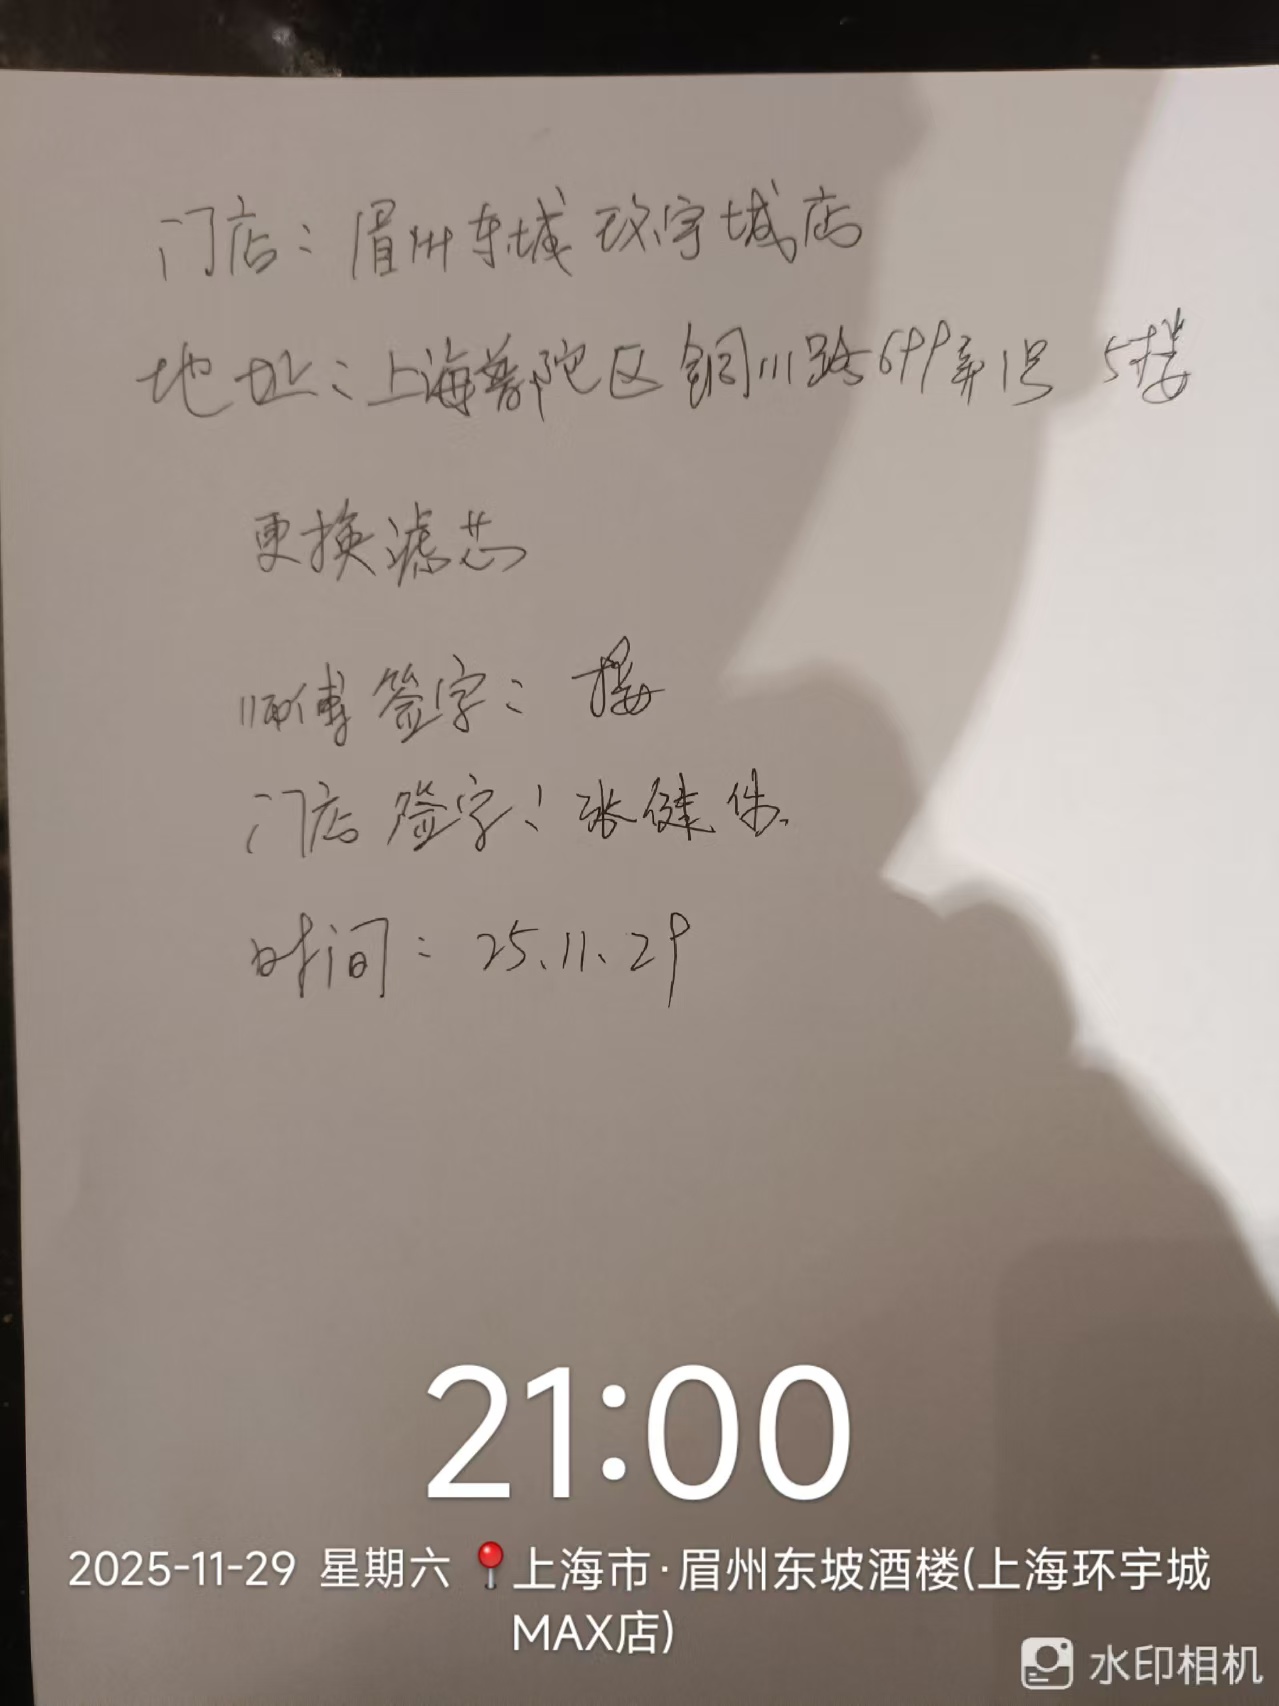 门店：眉州东城 环宇城店
地址：上海普陀区铜川路699弄1号 5楼
更换滤芯
师傅签字：
门店签字：张健伟
时间：25.11.29
21:00
2025-11-29 星期六 上海市·眉州东坡酒楼(上海环宇城
MAX店)
水印相机